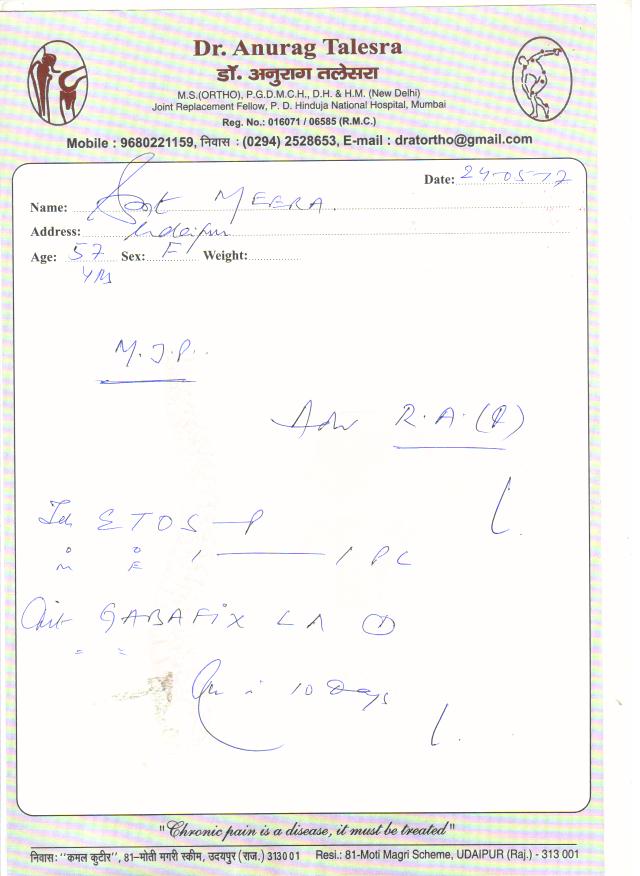 Dr. Anurag Talesra
डॉ. अनुराग तलेसरा
M.S.(ORTHO), P.G.D.M.C.H., D.H. & H.M. (New Delhi)
Joint Replacement Fellow, P. D. Hinduja National Hospital, Mumbai
Reg. No.: 016071 / 06585 (R.M.C.)
Mobile : 9680221159, निवास : (0294) 2528653, E-mail : dratortho@gmail.com
Date: 24-05-17
Name: MEERA
Address: Udaipur
Age: 57 Sex: F Weight:
M.J.P.
Adv R.A.
ETOS-P
M E 1 1 PC
GABAFIX LA
10 Days
"Chronic pain is a disease, it must be treated"
निवास: "कमल कुटीर", 81-मोती मगरी स्कीम, उदयपुर (राज.) 313001 Resi.: 81-Moti Magri Scheme, UDAIPUR (Raj.) - 313 001